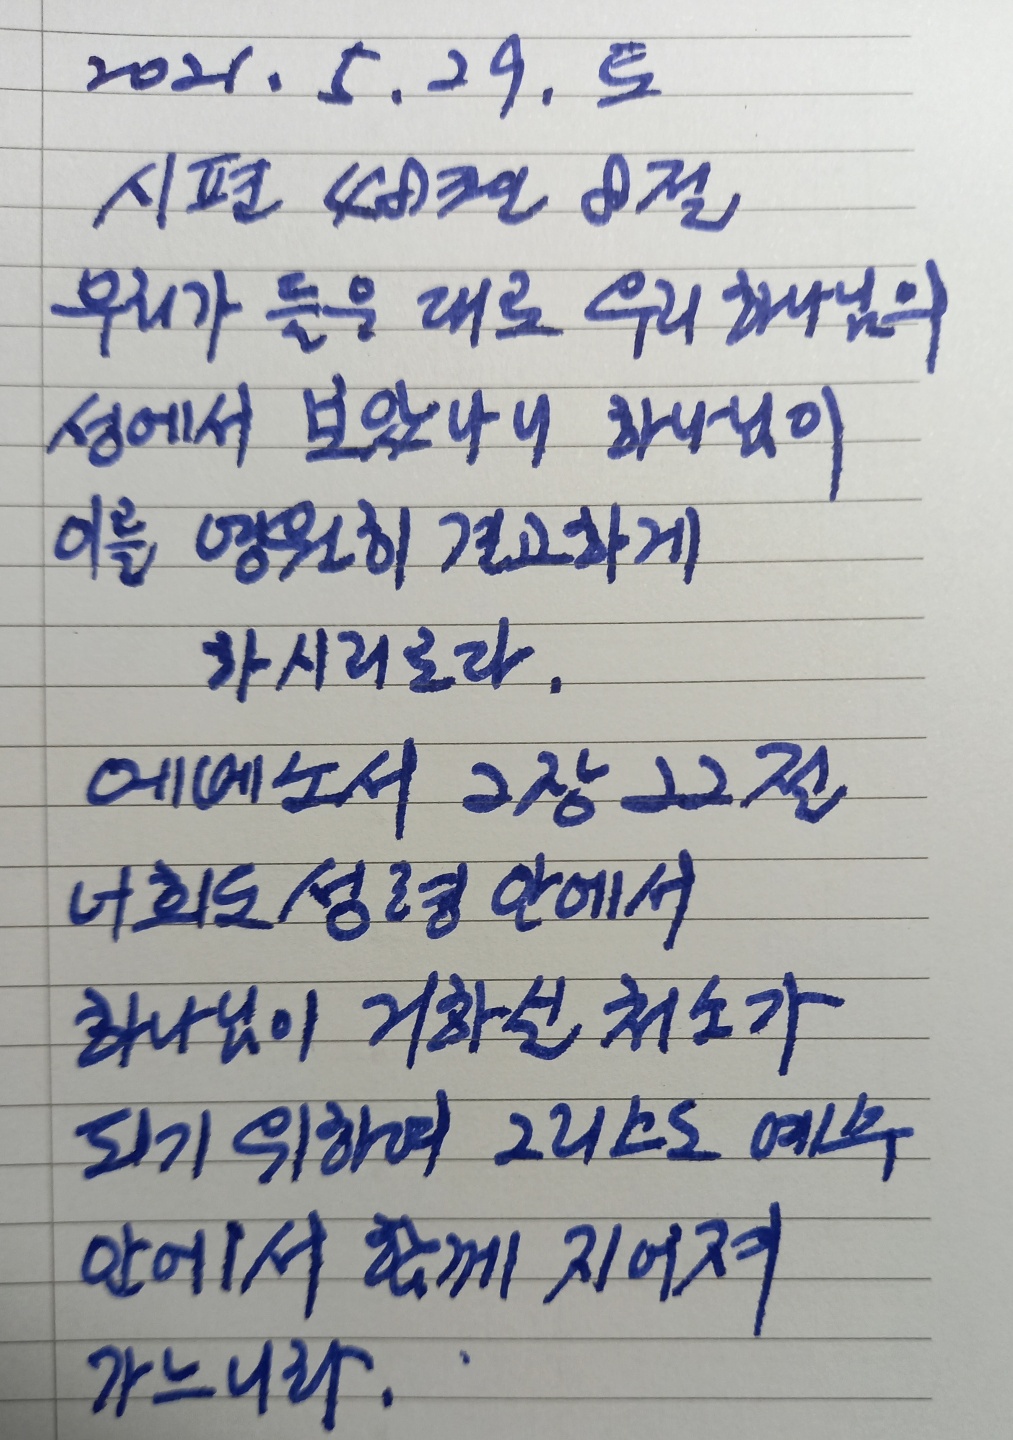 2021. 5. 29. 토
시편 48편 8절
우리가 들은 대로 우리 하나님의
성에서 보았나니 하나님이
이를 영원히 견고하게
하시리로다.
에베소서 2장 22절
너희도 성령 안에서
하나님이 거하실 처소가
되기 위하여 그리스도 예수
안에서 함께 지어져
가느니라.